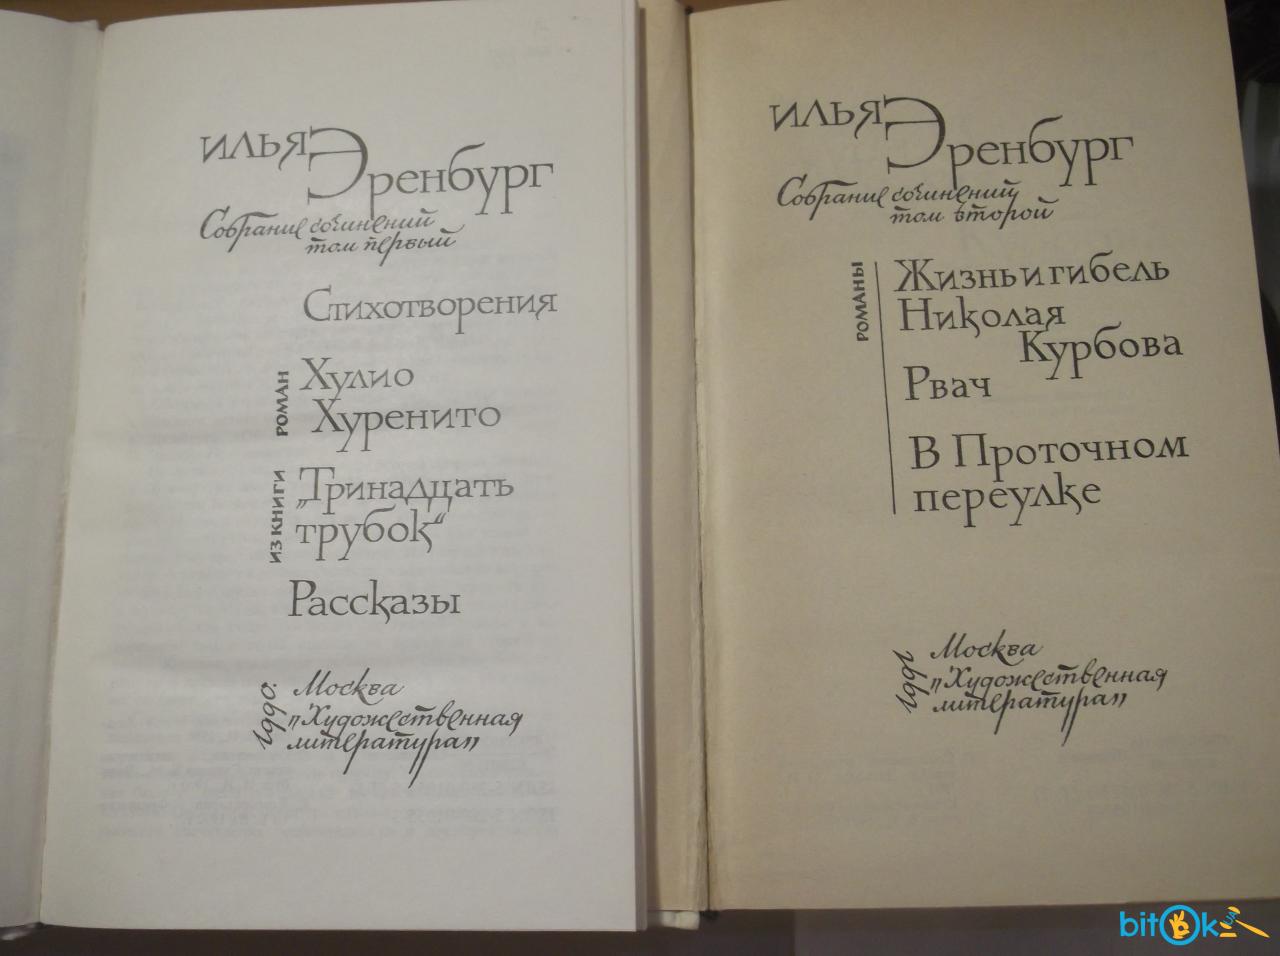 Илья
Эренбург
Собрание сочинений
том первый
Стихотворения
РОМАН
Хулио
Хуренито
ИЗ КНИГИ
„Тринадцать
трубок“
Рассказы
1990.
Москва
„Художественная
литература„
Илья
Эренбург
Собрание сочинений
том второй
РОМАНЫ
Жизнь и гибель
Николая
Курбова
Рвач
В Проточном
переулке
1991
Москва
„Художественная
литература„
bitOk
UA